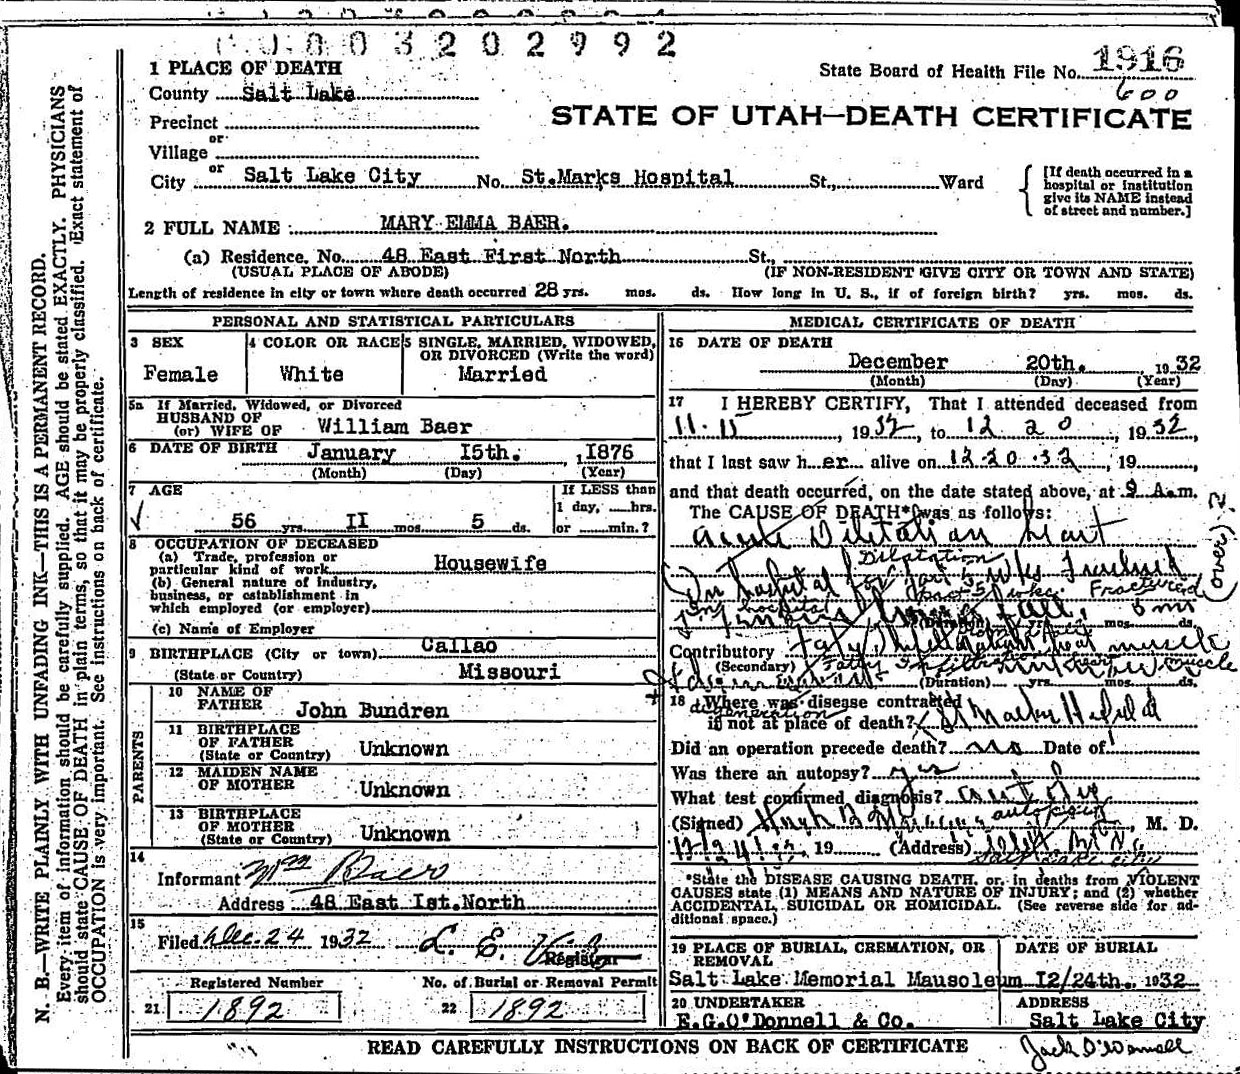 0 0 3 2 0 2 9 9 2
1 PLACE OF DEATH
State Board of Health File No. 1916
600
County Salt Lake
STATE OF UTAH—DEATH CERTIFICATE
Precinct
or
Village
or
City Salt Lake City No. St.Marks Hospital St., Ward
[If death occurred in a hospital or institution give its NAME instead of street and number.]
2 FULL NAME MARY EMMA BAER.
(a) Residence. No. 48 East First North St.,
(USUAL PLACE OF ABODE) (IF NON-RESIDENT GIVE CITY OR TOWN AND STATE)
Length of residence in city or town where death occurred 28 yrs. mos. ds. How long in U. S., if of foreign birth? yrs. mos. ds.
N. B.—WRITE PLAINLY WITH UNFADING INK—THIS IS A PERMANENT RECORD.
Every item of information should be carefully supplied. AGE should be stated EXACTLY. PHYSICIANS
should state CAUSE OF DEATH in plain terms, so that it may be properly classified. Exact statement of
OCCUPATION is very important. See instructions on back of certificate.
PERSONAL AND STATISTICAL PARTICULARS
3 SEX
Female
4 COLOR OR RACE
White
5 SINGLE, MARRIED, WIDOWED,
OR DIVORCED (Write the word)
Married
5a If Married, Widowed, or Divorced
HUSBAND OF
(or) WIFE OF William Baer
6 DATE OF BIRTH January I5th. 1876
(Month) (Day) (Year)
7 AGE
56 yrs. II mos. 5 ds.
If LESS than
1 day, hrs.
or min.?
8 OCCUPATION OF DECEASED
(a) Trade, profession or
particular kind of work Housewife
(b) General nature of industry,
business, or establishment in
which employed (or employer)
(c) Name of Employer
9 BIRTHPLACE (City or town) Callao
(State or Country) Missouri
PARENTS
10 NAME OF
FATHER John Bundren
11 BIRTHPLACE
OF FATHER Unknown
(State or Country)
12 MAIDEN NAME
OF MOTHER Unknown
13 BIRTHPLACE
OF MOTHER Unknown
(State or Country)
14
Informant Wm Baer
Address 48 East Ist.North
15
Filed Dec. 24 1932 L. E.
Registrar
Registered Number
21 1892
No. of Burial or Removal Permit
22 1892
MEDICAL CERTIFICATE OF DEATH
16 DATE OF DEATH
December 20th. 1932
(Month) (Day) (Year)
17 I HEREBY CERTIFY, That I attended deceased from
1932, to 12 20, 1932,
that I last saw her alive on 12.20.32, 19
and that death occurred, on the date stated above, at 9 A.m.
The CAUSE OF DEATH* was as follows:
Acute Dilatation heart
Dilatation
In hospital for past 5 wks Fractured
past 5 weeks Fractured
In hospital
(over)
(Duration) yrs. mos. ds.
Contributory Fatty heart muscle
(Secondary) Fatty Infiltration heart muscle
(Duration) yrs. mos. ds.
18 Where was disease contracted
degeneration
if not at place of death? St Marks
Did an operation precede death? no Date of
Was there an autopsy? yes
What test confirmed diagnosis?
autopsy
(Signed) Hugh B, M. D.
19 (Address)
Salt Lake City
*State the DISEASE CAUSING DEATH, or, in deaths from VIOLENT
CAUSES state (1) MEANS AND NATURE OF INJURY; and (2) whether
ACCIDENTAL, SUICIDAL OR HOMICIDAL. (See reverse side for ad-
ditional space.)
19 PLACE OF BURIAL, CREMATION, OR
REMOVAL
Salt Lake Memorial Mausoleum
DATE OF BURIAL
I2/24th. 1932
20 UNDERTAKER
E.G.O'Donnell & Co.
ADDRESS
Salt Lake City
READ CAREFULLY INSTRUCTIONS ON BACK OF CERTIFICATE
Jack O'Donnell